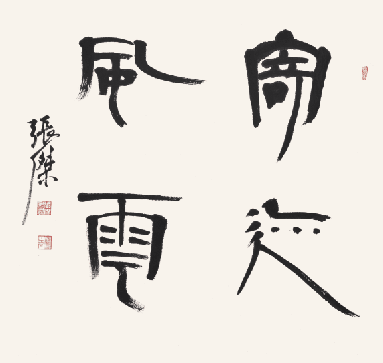 寄迹
風雲
張傑